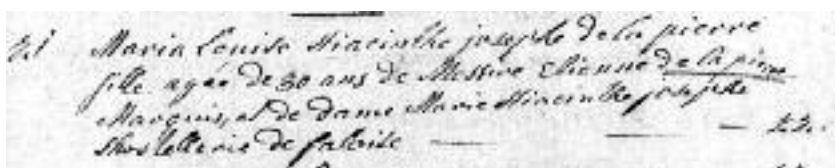 Maria Louise Hiacinthe josephe de la pierre
fille agée de 30 ans de Messire Etienne de la pierre
Marquis, et de dame Marie Hiacinthe josephe
hostellerie de faloise